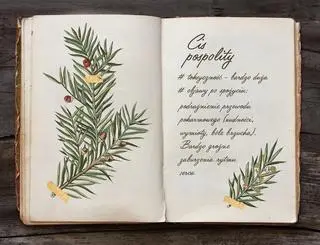 Cis
pospolity
# toksyczność – bardzo duża
# objawy po spożyciu:
podrażnienie przewodu
pokarmowego (nudności,
wymioty, bóle brzucha).
Bardzo groźne
zaburzenia rytmu
serca.